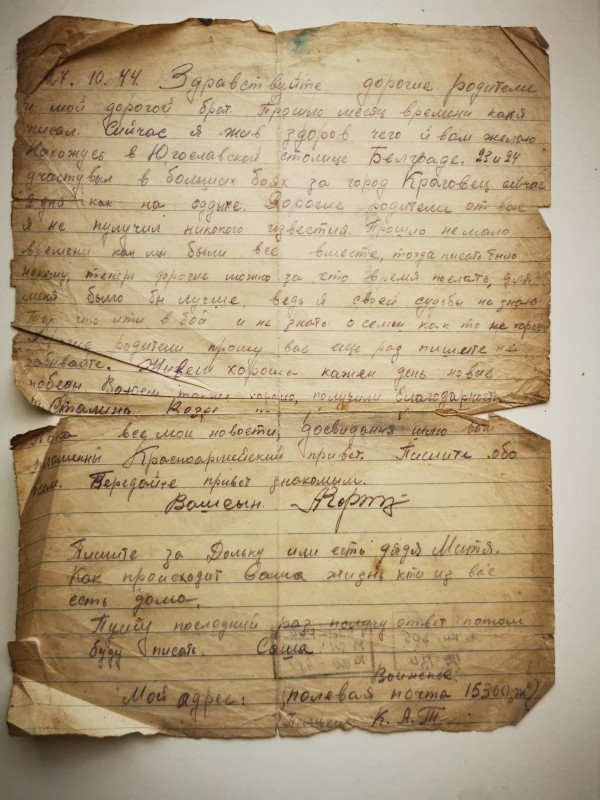 27. 10. 44. Здравствуйте дорогие родители
и мой дорогой брат. Прошло месяц времени как я
писал. Сийчас я жив здоров чего й вам желаю
Нахожусь в Югославской столице Белграде. 23 и 24
участувыл в больших боях за город Краговец сийчас
дня как на оздыхе. Дорогие родители от вас
я не пулучил никокого известия. Прошло не мало
времени как мы были все вместе, тогда писать было
некому, теперь дорогие можно за ето время послать, для
меня было бы лучше, ведь я своей судьбы не знаю
Так что итти в бой и не знать о семьи как то не хорошо
родители прошу вас еще раз пишите не
забивайте. Живем хороша кажен день новые
победы. Воюем также хорошо, получили благодарность
т. Сталина.
Пока все мои новости, досвидания шлю вам
пламенны Красноармийский привет. Пишите обо
всем. Передайте привет знакомым.
Вашсын.
Пишите за Дольку или есть дядя Митя.
Как происходит Саша жизнь кто из вас
есть дома.
Пишу последний раз получу ответ потом
буду писать. Саша
Воинское.
Мой адрес: (полевая почта 15360
К. А. Т.